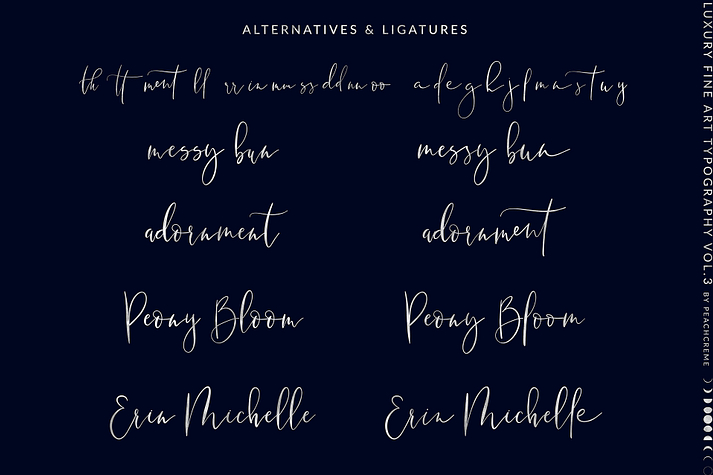 ALTERNATIVES & LIGATURES
th tt ment ll rr in nn ss dd nn oo a d e g h j l m n s t u y
messy bun messy bun
adornment adornment
Peony Bloom Peony Bloom
Erin Michelle Erin Michelle
LUXURY FINE ART TYPOGRAPHY VOL.3 BY PEACHCREME